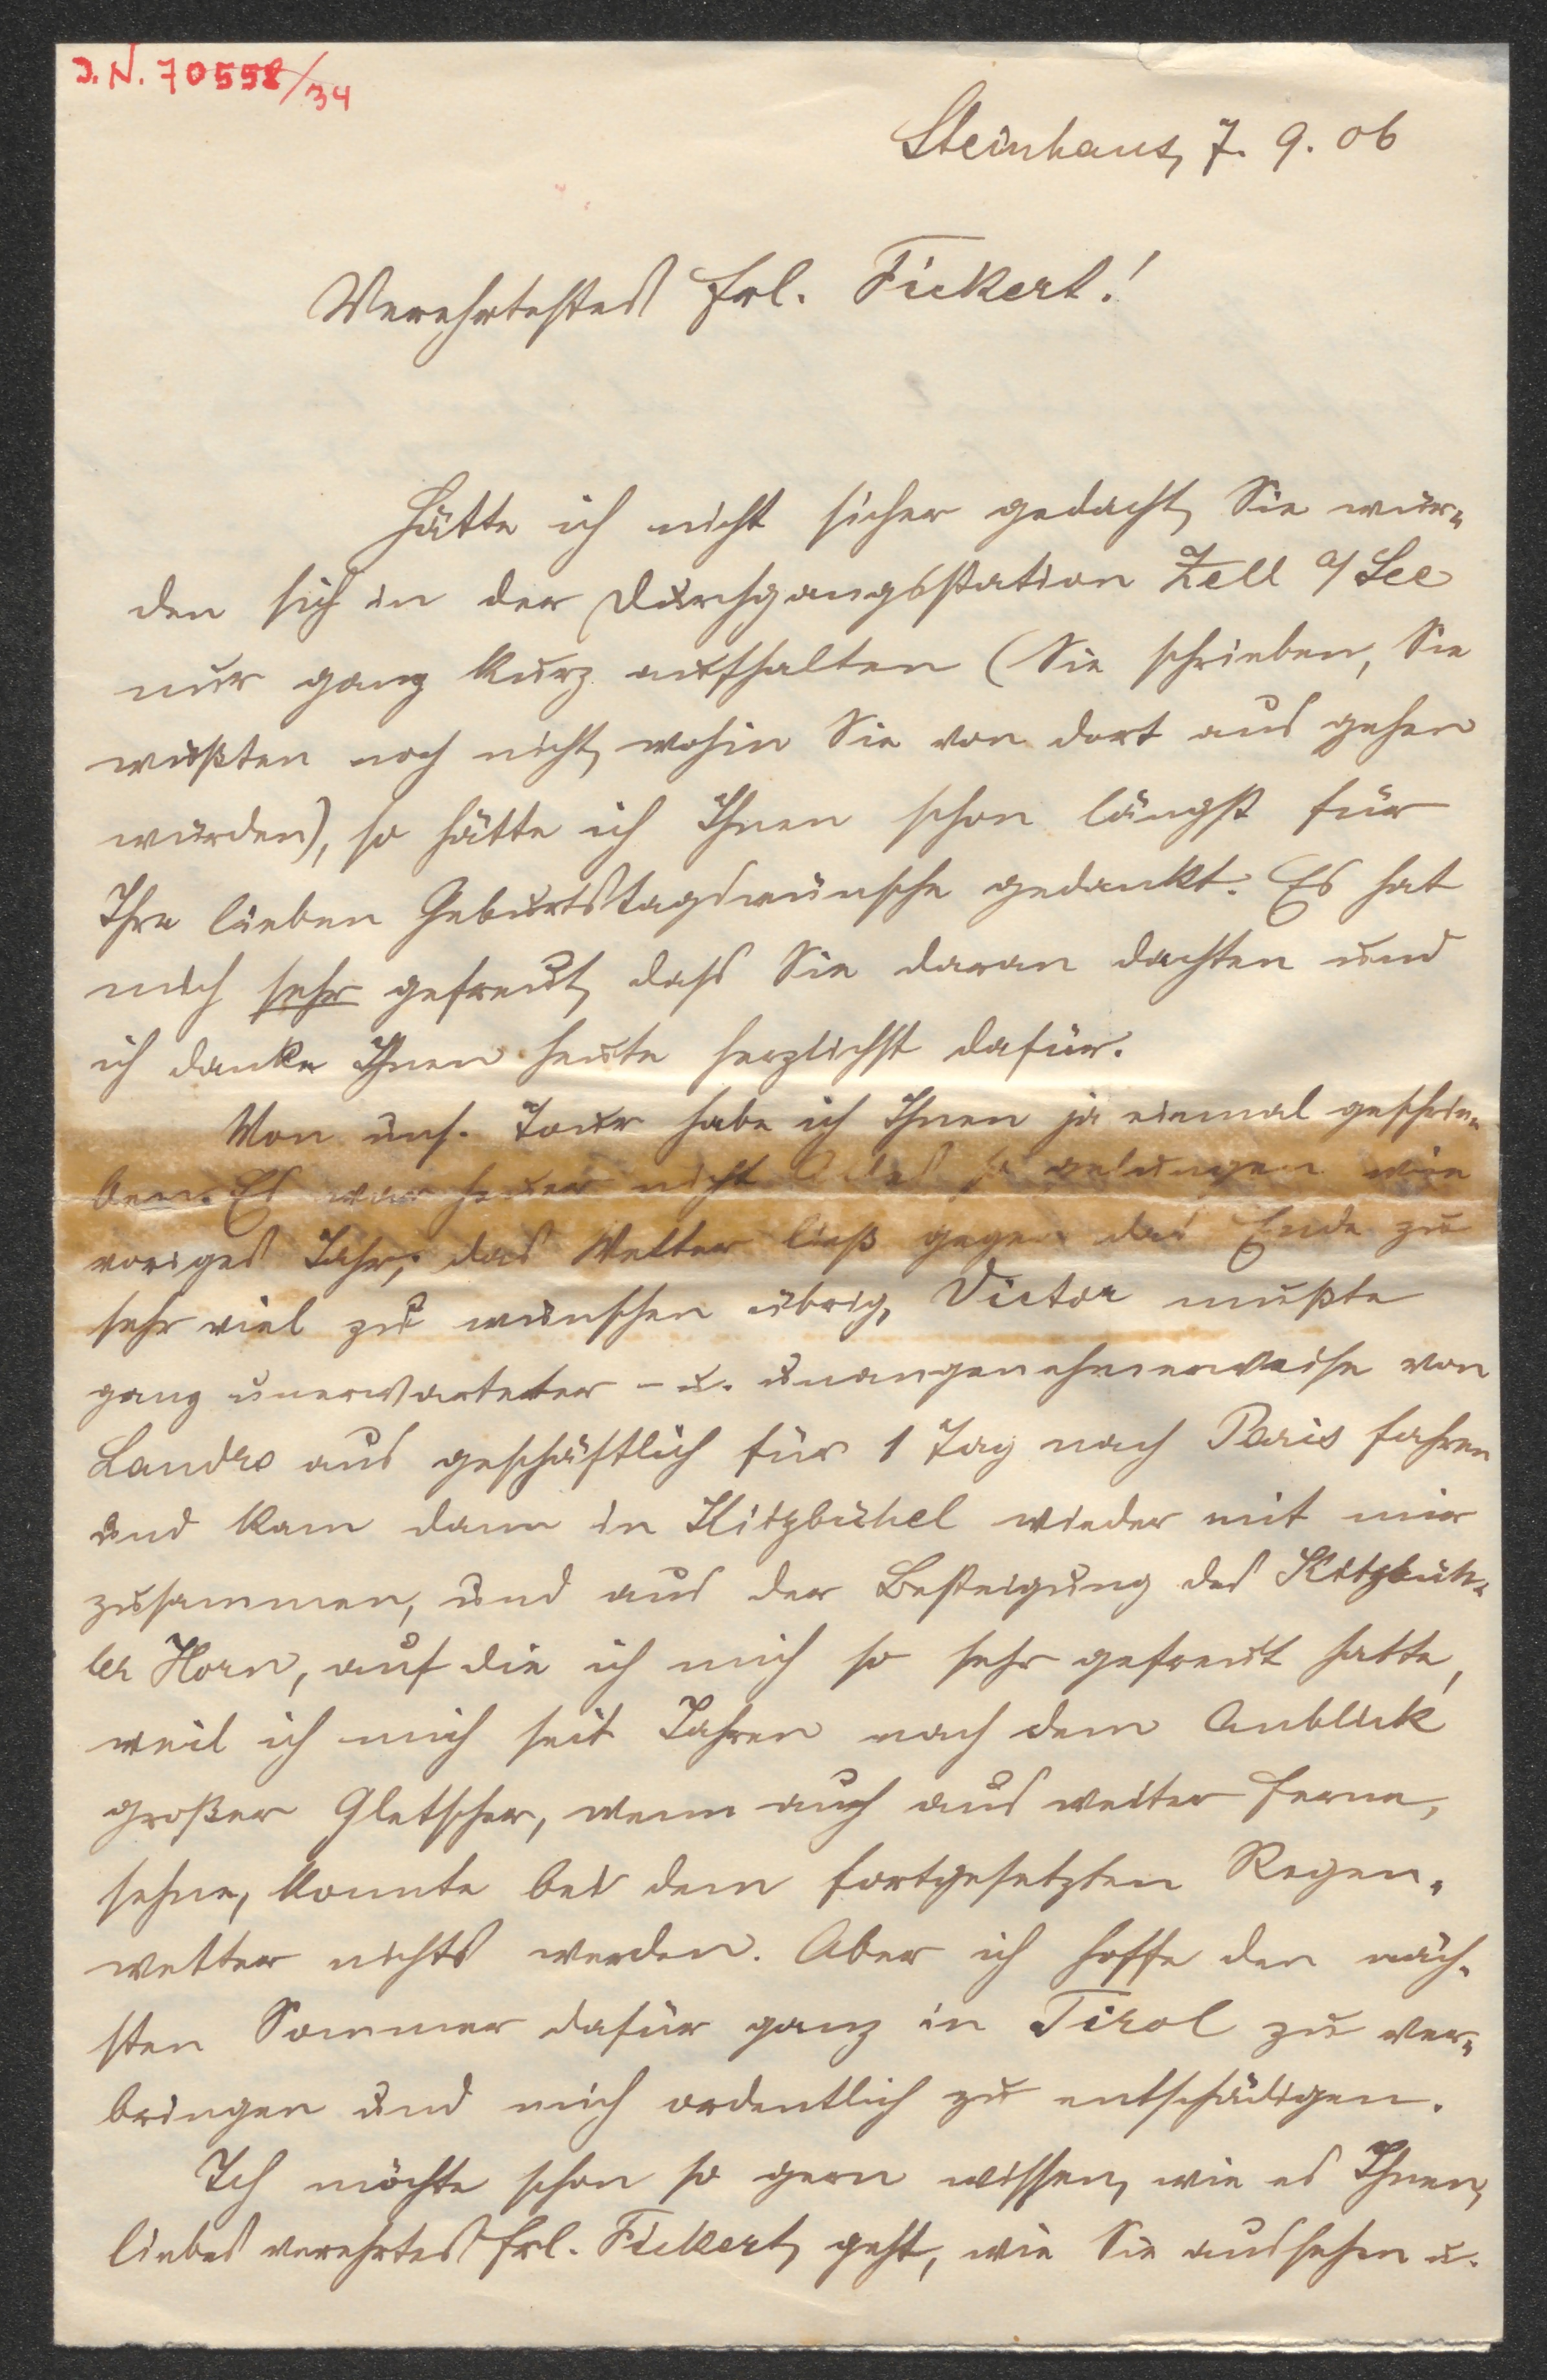 J. N. 70558/34
Steinhaus, 7. 9. 06
Verehrtestes Frl. Fickert!
Hätte ich nicht sicher gedacht, Sie wür-
den sich in der Durchgangsstation Zell a/See
nur ganz kurz aufhalten (Sie schrieben, Sie
wußten noch nicht, wohin Sie von dort aus gehen
würden), so hätte ich Ihnen schon längst für
Ihre lieben Geburtstagswünsche gedankt. Es hat
mich sehr gefreut, dass Sie daran dachten und
ich danke Ihnen heute herzlichst dafür.
Von uns. Tour habe ich Ihnen ja einmal geschrie-
ben. Es war heuer nicht Alles so gelungen wie
voriges Jahr; das Wetter ließ gegen das Ende zu
sehr viel zu wünschen übrig, Victor mußte
ganz unerwarteter - u. unangenehmerweise von
Landro aus geschäftlich für 1 Tag nach Paris fahren
und kam dann in Kitzbühel wieder mit mir
zusammen, und aus der Besteigung des Kitzbüh-
ler Horn, auf die ich mich so sehr gefreut hatte,
weil ich mich seit Jahren nach dem Anblick
großer Gletscher, wenn auch aus weiter Ferne,
sehne, konnte bei dem fortgesetzten Regen-
wetter nichts werden. Aber ich hoffe den näch-
sten Sommer dafür ganz in Tirol zu ver-
bringen und mich ordentlich zu entschädigen.
Ich möchte schon so gern wissen, wie es Ihnen,
liebes verehrtes Frl. Fickert, geht, wie Sie aussehen u.